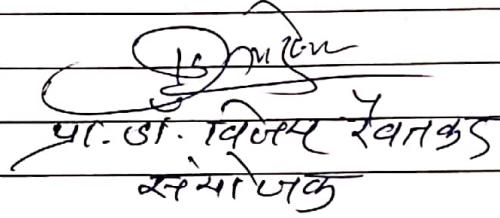 प्रा. डा. विजय रेवतकर
संयोजक